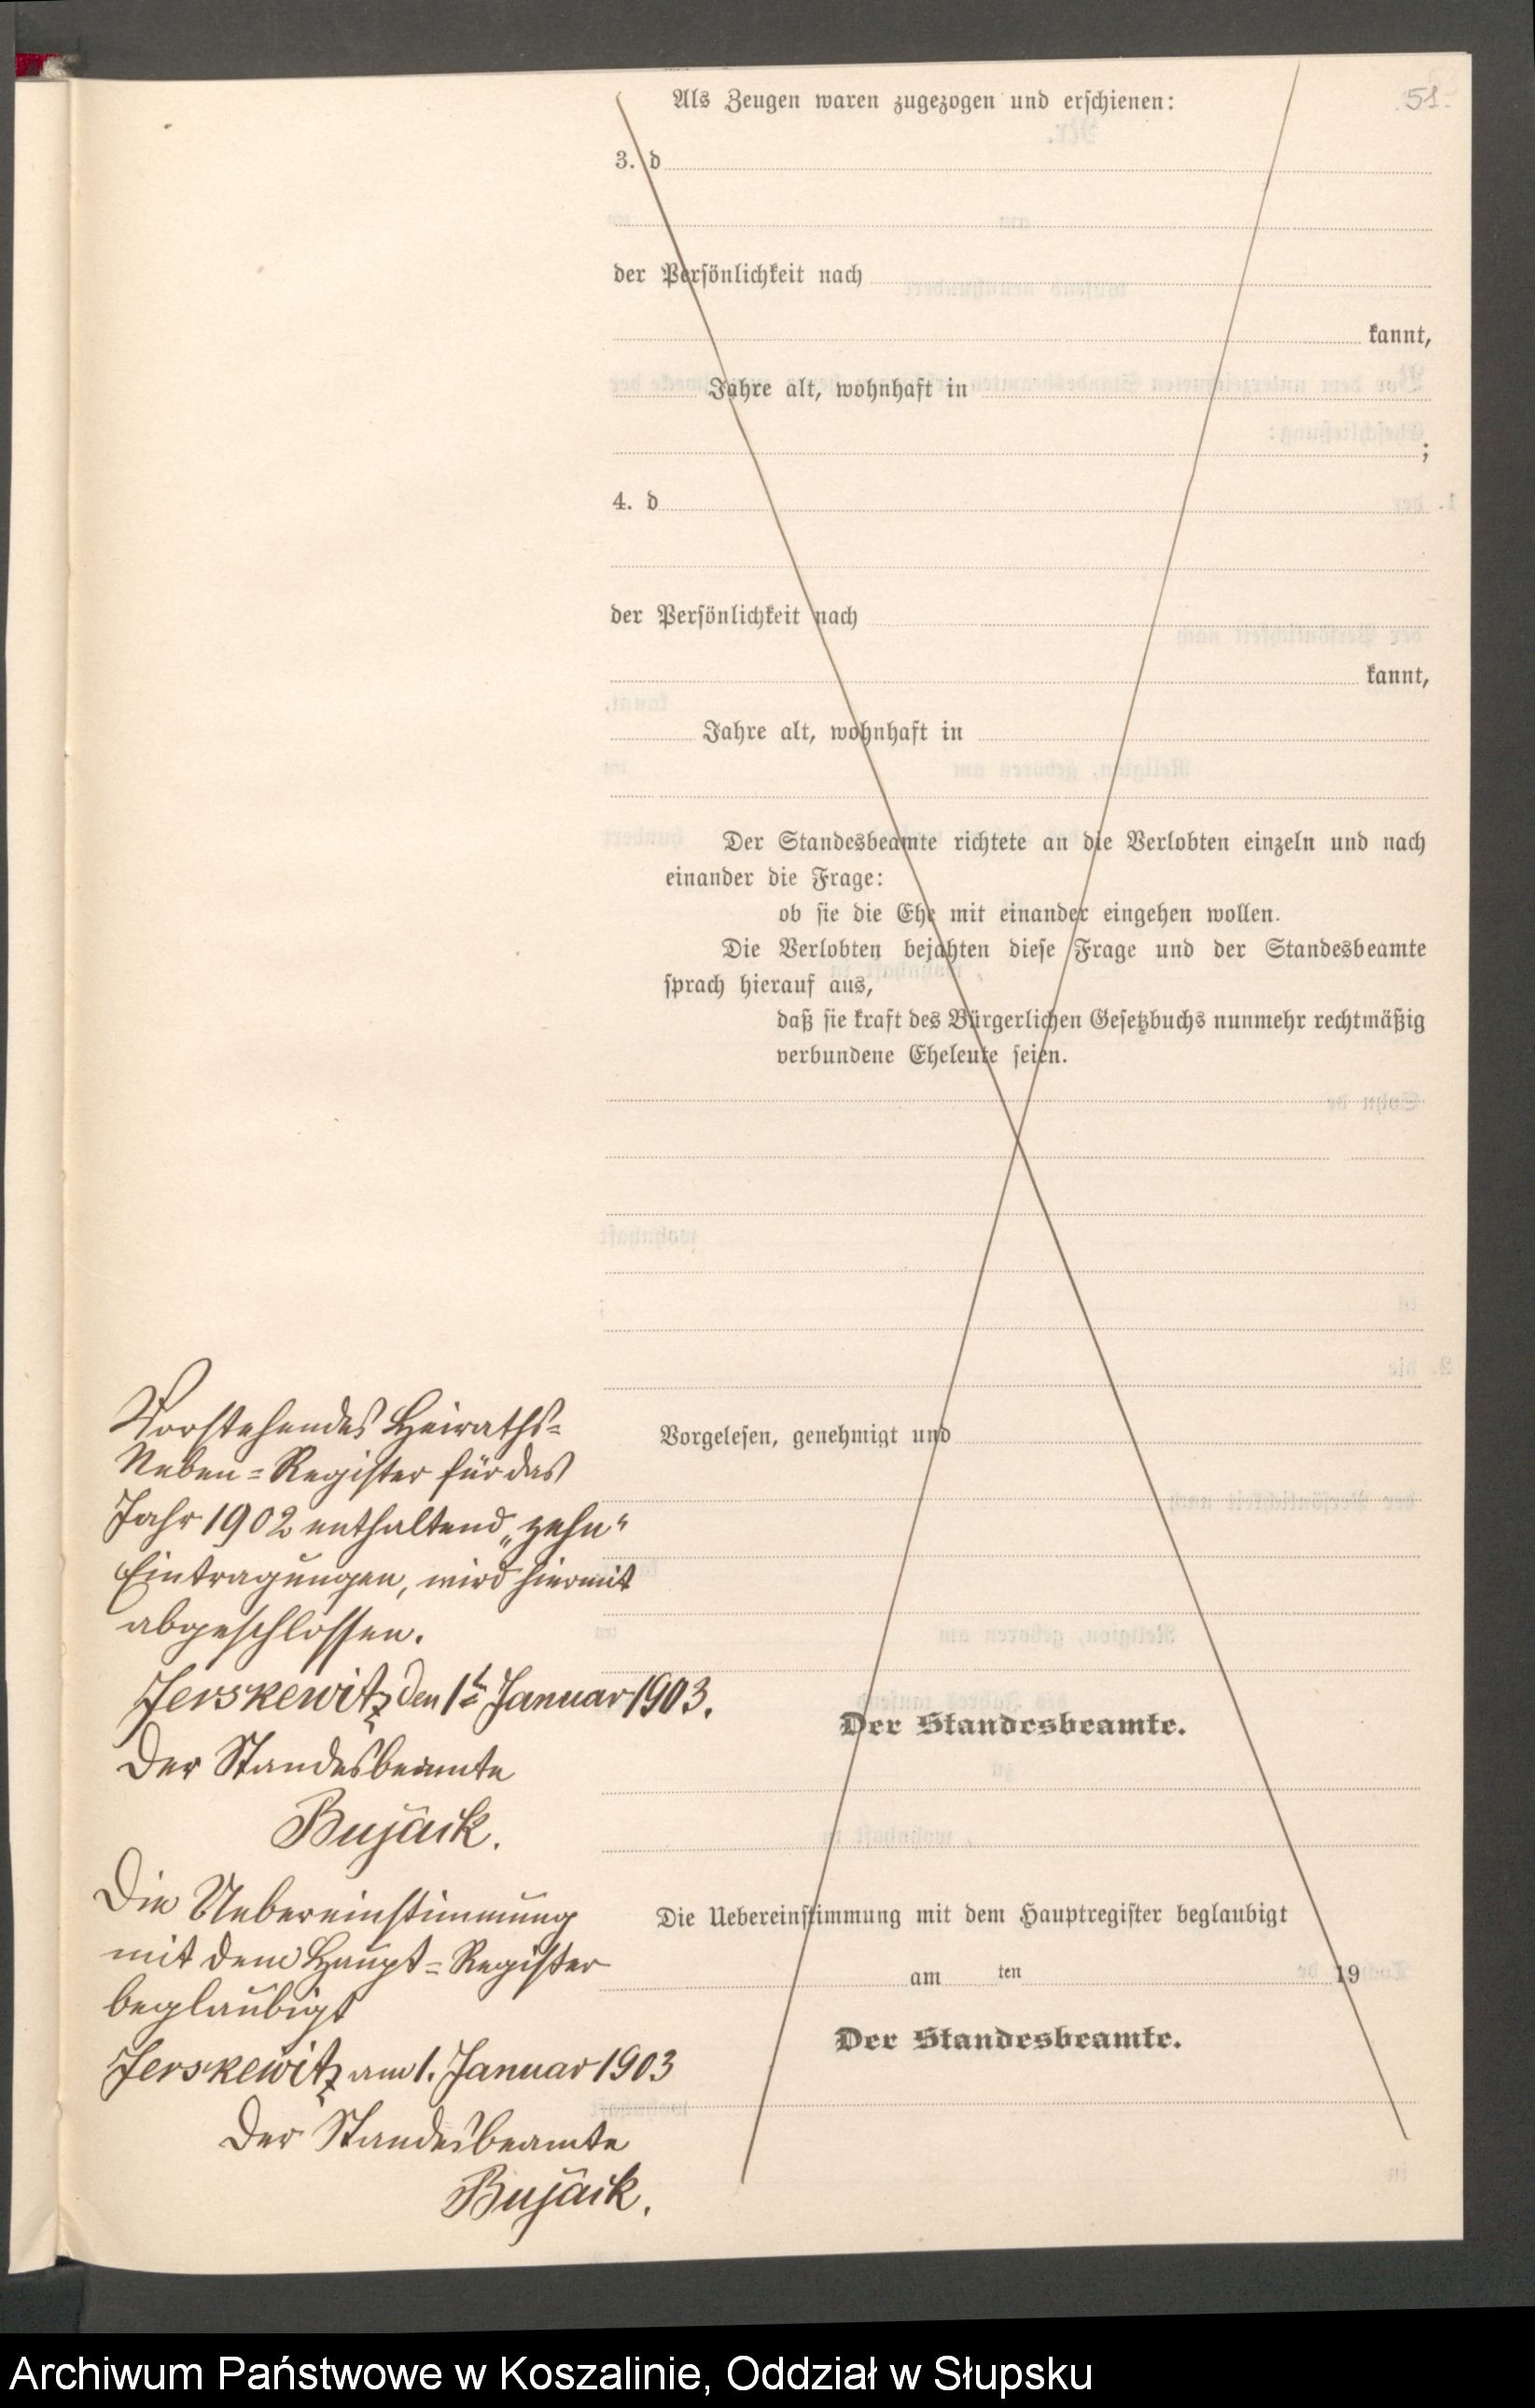 51.
Als Zeugen waren zugezogen und erschienen:
3. d
der Persönlichkeit nach
kannt,
Jahre alt, wohnhaft in
;
4. d
der Persönlichkeit nach
kannt,
Jahre alt, wohnhaft in
Der Standesbeamte richtete an die Verlobten einzeln und nach
einander die Frage:
ob sie die Ehe mit einander eingehen wollen.
Die Verlobten bejahten diese Frage und der Standesbeamte
sprach hierauf aus,
daß sie kraft des Bürgerlichen Gesetzbuchs nunmehr rechtmäßig
verbundene Eheleute seien.
Vorgelesen, genehmigt und
Der Standesbeamte.
Die Uebereinstimmung mit dem Hauptregister beglaubigt
am ten 19
Der Standesbeamte.
Vorstehendes Heiraths-
Neben-Register für das
Jahr 1902 enthaltend „zehn“
Eintragungen, wird hiermit
abgeschlossen.
Jerskewitz den 1t Januar 1903.
Der Standesbeamte
Bujack.
Die Uebereinstimmung
mit dem Haupt-Register
beglaubigt
Jerskewitz am 1. Januar 1903
Der Standesbeamte
Bujack.
Archiwum Państwowe w Koszalinie, Oddział w Słupsku